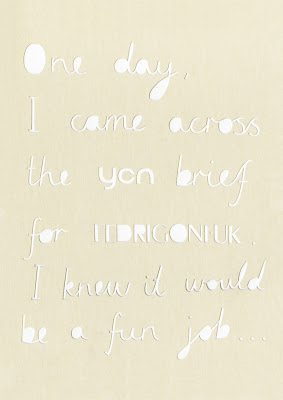 One day,
I came across
the ycn brief
for FEDRIGONI UK.
I knew it would
be a fun job...